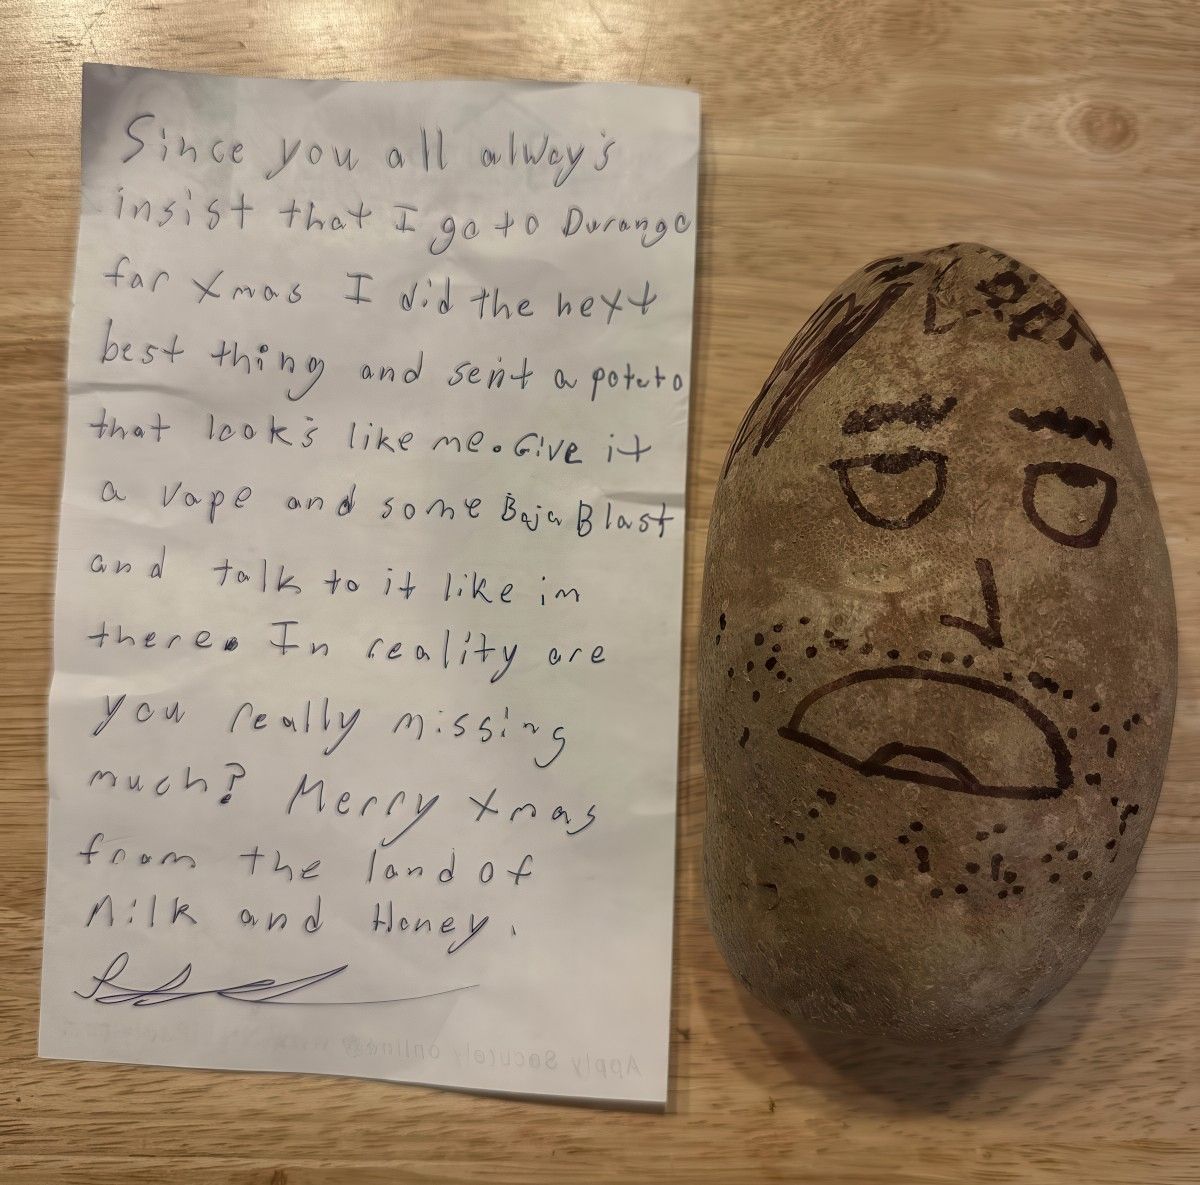 Since you all alway's
insist that I go to Durango
for Xmas I did the next
best thing and sent a potato
that look's like me. Give it
a vape and some Baja Blast
and talk to it like im
there. In reality are
you really missing
much? Merry Xmas
from the land of
Milk and Honey.
Apply Securely online